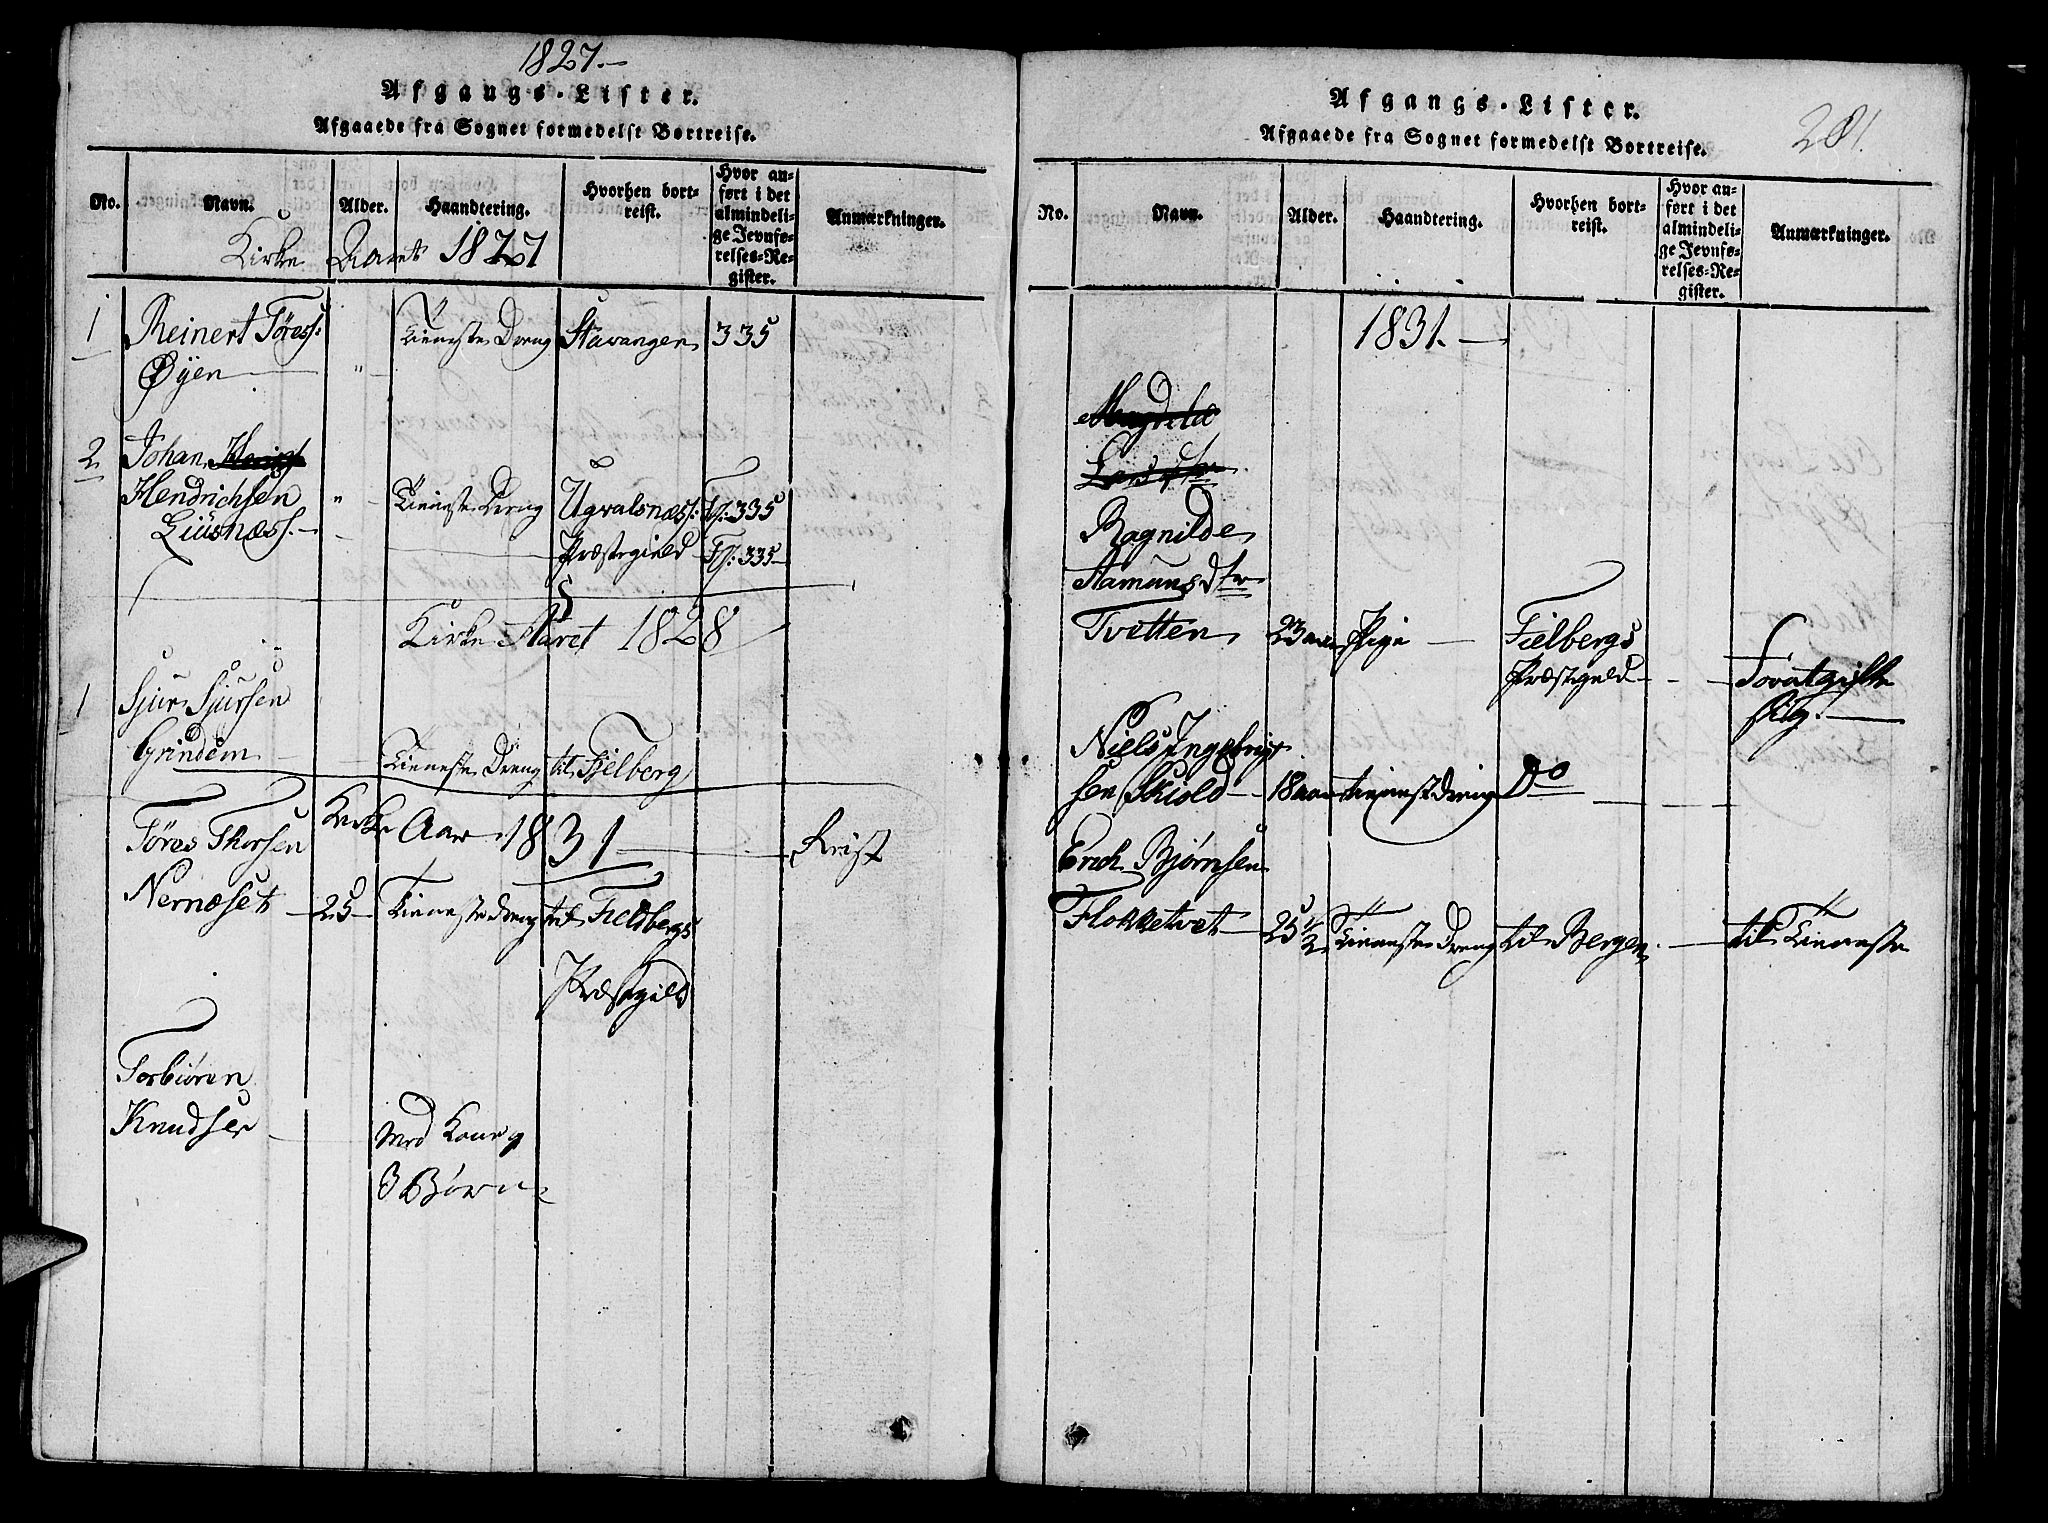 1827.
Afgangs-Lister.
Afgaaede fra Sognet formedelst Bortreise.
No. Navn. Alder. Haandtering. Hvorhen bortreist. Hvor anført i det almindelige Jevnførelses-Register. Anmærkninger.
Kirke Aaret 1827
1 Reinert Töress: Tieneste Dreng Stavanger 335
Øyen "
2 Johan
Hendrichsen " Tieneste Dreng Ugvalsnæss: Fl: 335
Liüsnæss. Præstegield Fl: 335
Kirke Aaret 1828
1 Sjur Sjursen
Grindem Tieneste Dreng til Fjelberg
Kirke Aar 1831
Töres Thorsen
Nernæset 25 Tieneste dreng til Fieldbergs
Præstegield
Torbiören
Knudsen Med Kone og
3 Børn
Afgangs-Lister.
281.
Afgaaede fra Sognet formedelst Bortreise.
No. Navn. Alder. Haandtering. Hvorhen bortreist. Hvor anført i det almindelige Jevnførelses-Register. Anmærkninger.
1831.
Magdela
Larsdtr
Ragnilde
Aamunsdtr
Tvetten 23 aar Pige Fielbergs
Præstegield
Niels Ingebrigt
sen Skiold 18 aar tienestdreng Do
Erich Bjørnsen
Flokketvet 25 1/2 Tieneste Dreng til Bergen. til Tieneste